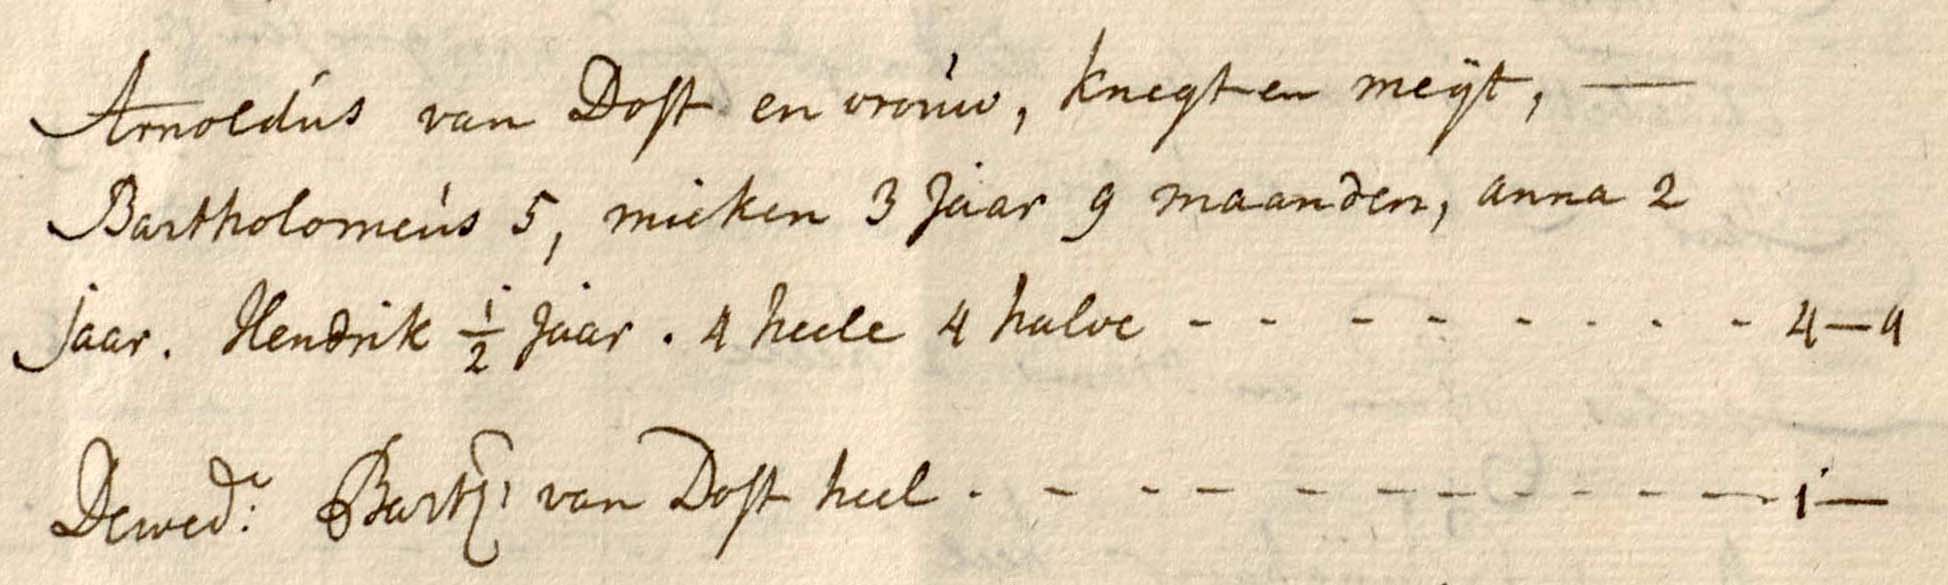 Arnoldús van Dost en vroúw, knegt en meÿt, —
Bartholomeús 5, mieken 3 Jaar 9 maanden, anna 2
jaar. Hendrik ½ Jaar. 4 heele 4 halve - - - - - - - - - 4—4
De wed: Barth van Dost heel - - - - - - - - - - - 1—